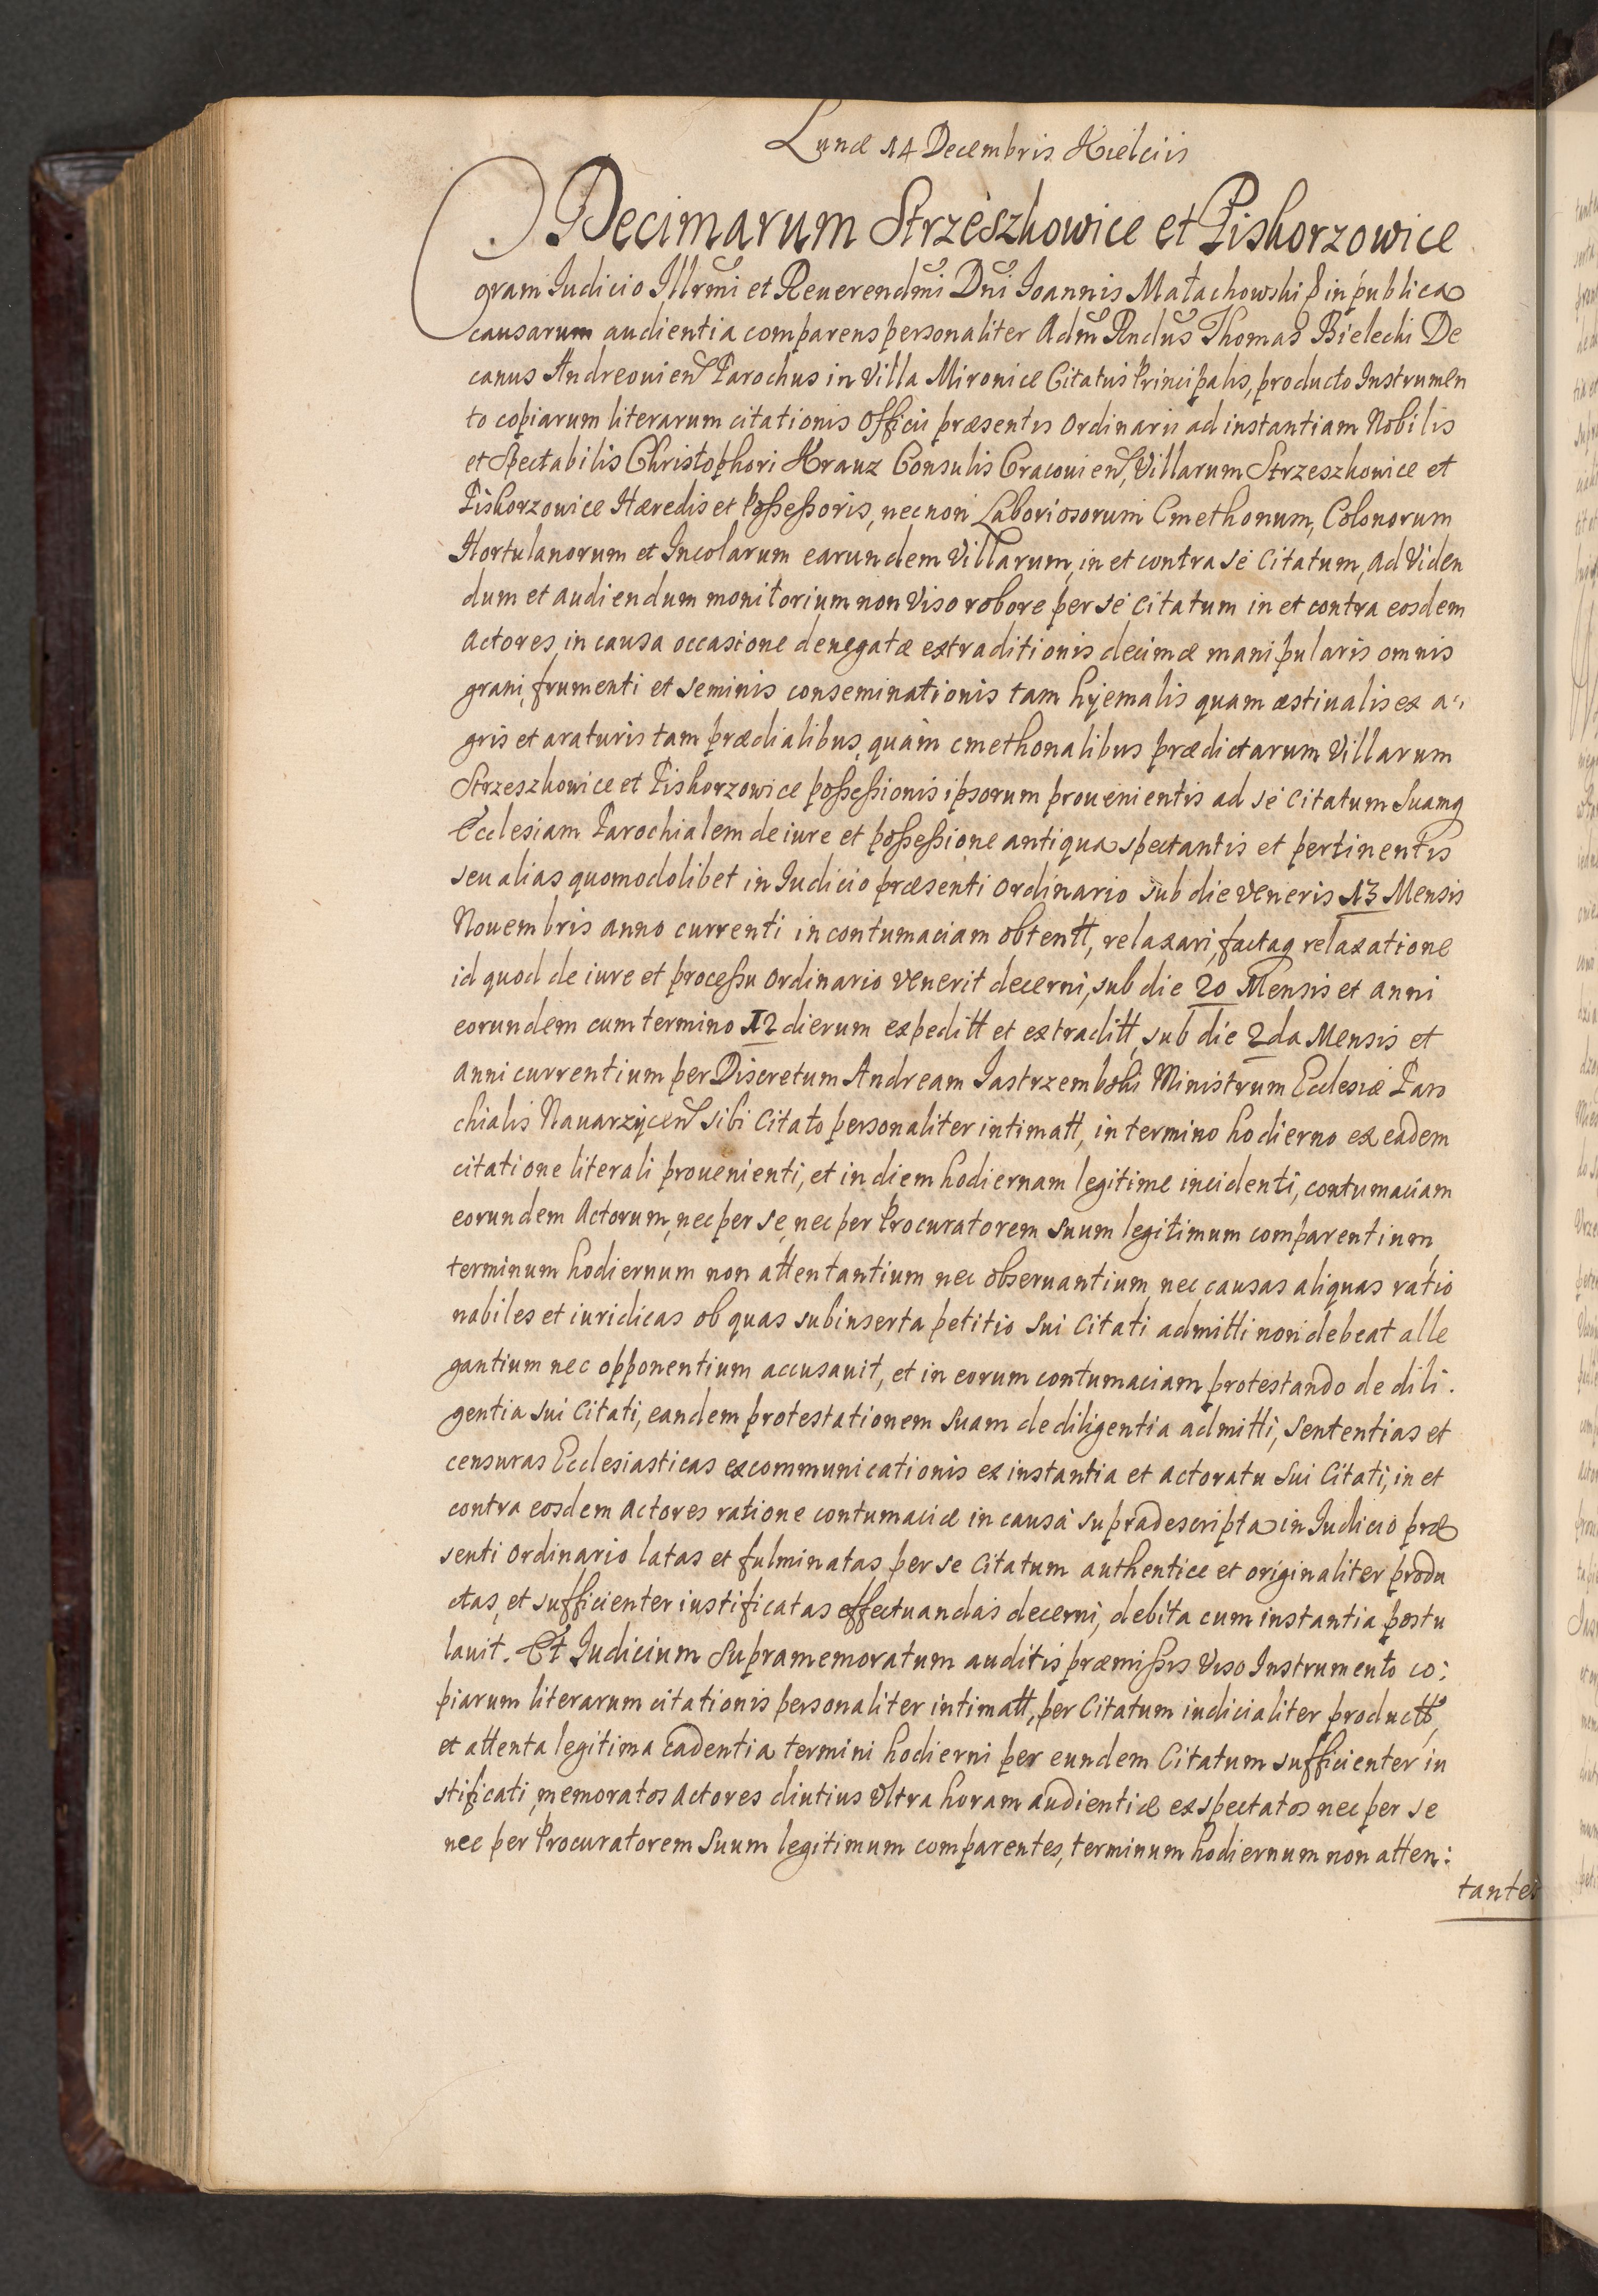 Lunæ 14 Decembris Kielciis
Decimarum Strzeszkowice et Piskorzowice
Coram Iudicio Illrmi et Reuerendmi Dni Ioannis Małachowski in publica
causarum audientia comparens personaliter Adm Rndus Thomas Bielecki De
canus Andreouien Parochus in Villa Mironice Citatus Principalis, producto Instrumen
to copiarum literarum citationis Officii præsentis Ordinarii ad instantiam Nobilis
et Spectabilis Christophori Krauz Consulis Cracouien, Villarum Strzeszkowice et
Piskorzowice Hæredis et Possessoris, necnon Laboriosorum Cmethonum, Colonorum
Hortulanorum et Incolarum earundem Villarum, in et contra se Citatum, ad Viden
dum et audiendum monitorium non Viso robore per se Citatum in et contra eosdem
Actores, in causa occasione denegatæ extraditionis decimæ manipularis omnis
grani, frumenti et seminis conseminationis tam hyemalis quam æstiualis ex a:
gris et araturis tam prædialibus, quam cmethonalibus prædictarum Villarum
Strzeszkowice et Piskorzowice possessionis ipsorum prouenientis ad se Citatum Suamq
Ecclesiam Parochialem de iure et possessione antiqua spectantis et pertinentis
seu alias quomodolibet in Iudicio præsenti Ordinario sub die Veneris 13 Mensis
Nouembris anno currenti in contumaciam obtentt, relaxari, factaq relaxatione
id quod de iure et processu Ordinario Venerit decerni, sub die 20 Mensis et anni
eorundem cum termino 12 dierum expeditt et extraditt, sub die 2da Mensis et
Anni currentium per Discretum Andream Jastrzembski Ministrum Ecclesiæ Paro
chialis Nauarzycen sibi Citato personaliter intimatt, in termino hodierno ex eadem
citatione literali prouenienti, et in diem hodiernam legitime incidenti, contumaciam
eorundem Actorum, nec per se, nec per Procuratorem suum legitimum comparentium,
terminum hodiernum non attentantium nec obseruantium nec causas aliquas ratio
nabiles et iuridicas ob quas subinserta petitio Sui Citati admitti non debeat alle
gantium nec opponentium accusauit, et in eorum contumaciam protestando de dili.
gentia sui Citati, eandem protestationem suam de diligentia admitti, Sententias et
censuras Ecclesiasticas excommunicationis ex instantia et actoratu Sui Citati, in et
contra eosdem Actores ratione contumaciæ in causa supradescripta in Iudicio præ
senti Ordinario latas et fulminatas per se Citatum authentice et originaliter produ
ctas, et sufficienter iustificatas effectuandas decerni, debita cum instantia postu
lauit. Et Iudicium Supramemoratum auditis præmissis Viso Instrumento co:
piarum literarum citationis personaliter intimatt, per Citatum iudicialiter productt,
et attenta legitima cadentia termini hodierni per eundem Citatum sufficienter iu
stificati, memoratos Actores diutius Vltra horam audientiæ expectatos nec per se
nec per Procuratorem Suum legitimum comparentes, terminum hodiernum non atten:
tantes